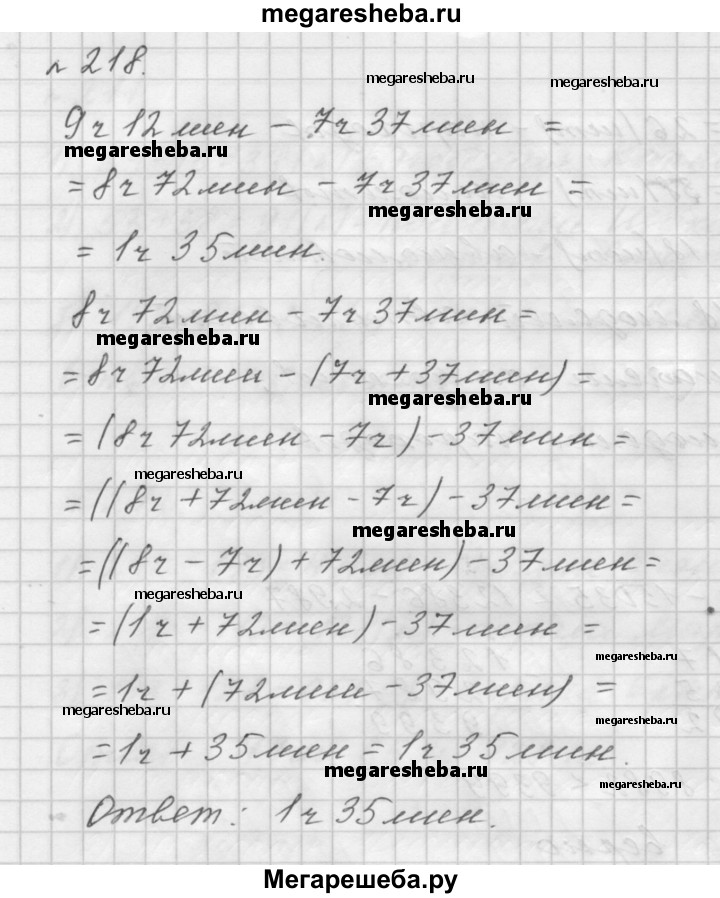 megaresheba.ru
№ 218.
megaresheba.ru megaresheba.ru
9 ч 12 мин - 7 ч 37 мин =
megaresheba.ru
= 8 ч 72 мин - 7 ч 37 мин =
megaresheba.ru
= 1 ч 35 мин.
8 ч 72 мин - 7 ч 37 мин =
megaresheba.ru
= 8 ч 72 мин - (7 ч + 37 мин) =
megaresheba.ru
= (8 ч 72 мин - 7 ч) - 37 мин =
megaresheba.ru
= ((8 ч + 72 мин - 7 ч) - 37 мин =
megaresheba.ru
= ((8 ч - 7 ч) + 72 мин) - 37 мин =
megaresheba.ru
= (1 ч + 72 мин) - 37 мин =
megaresheba.ru
= 1 ч + (72 мин - 37 мин) =
megaresheba.ru
megaresheba.ru
= 1 ч + 35 мин = 1 ч 35 мин.
megaresheba.ru
megaresheba.ru
Ответ: 1 ч 35 мин.
Мегарешеба.ру